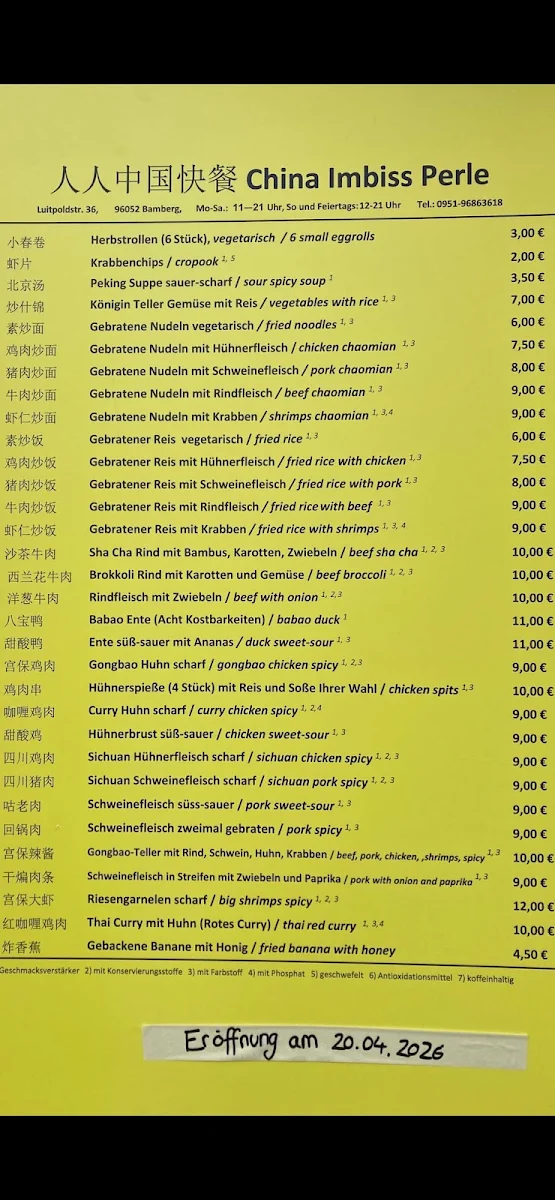 人人中国快餐 China Imbiss Perle
Luitpoldstr. 36, 96052 Bamberg, Mo-Sa.: 11—21 Uhr, So und Feiertags:12-21 Uhr Tel.: 0951-96863618
小春卷 Herbstrollen (6 Stück), vegetarisch / 6 small eggrolls 3,00 €
虾片 Krabbenchips / cropook 1, 5 2,00 €
北京汤 Peking Suppe sauer-scharf / sour spicy soup 1 3,50 €
炒什锦 Königin Teller Gemüse mit Reis / vegetables with rice 1, 3 7,00 €
素炒面 Gebratene Nudeln vegetarisch / fried noodles 1, 3 6,00 €
鸡肉炒面 Gebratene Nudeln mit Hühnerfleisch / chicken chaomian 1, 3 7,50 €
猪肉炒面 Gebratene Nudeln mit Schweinefleisch / pork chaomian 1, 3 8,00 €
牛肉炒面 Gebratene Nudeln mit Rindfleisch / beef chaomian 1, 3 9,00 €
虾仁炒面 Gebratene Nudeln mit Krabben / shrimps chaomian 1, 3,4 9,00 €
素炒饭 Gebratener Reis vegetarisch / fried rice 1, 3 6,00 €
鸡肉炒饭 Gebratener Reis mit Hühnerfleisch / fried rice with chicken 1, 3 7,50 €
猪肉炒饭 Gebratener Reis mit Schweinefleisch / fried rice with pork 1, 3 8,00 €
牛肉炒饭 Gebratener Reis mit Rindfleisch / fried rice with beef 1, 3 9,00 €
虾仁炒饭 Gebratener Reis mit Krabben / fried rice with shrimps 1, 3, 4 9,00 €
沙茶牛肉 Sha Cha Rind mit Bambus, Karotten, Zwiebeln / beef sha cha 1, 2, 3 10,00 €
西兰花牛肉 Brokkoli Rind mit Karotten und Gemüse / beef broccoli 1, 2, 3 10,00 €
洋葱牛肉 Rindfleisch mit Zwiebeln / beef with onion 1, 2,3 10,00 €
八宝鸭 Babao Ente (Acht Kostbarkeiten) / babao duck 1 11,00 €
甜酸鸭 Ente süß-sauer mit Ananas / duck sweet-sour 1, 3 11,00 €
宫保鸡肉 Gongbao Huhn scharf / gongbao chicken spicy 1, 2,3 9,00 €
鸡肉串 Hühnerspieße (4 Stück) mit Reis und Soße Ihrer Wahl / chicken spits 1,3 10,00 €
咖喱鸡肉 Curry Huhn scharf / curry chicken spicy 1, 2,4 9,00 €
甜酸鸡 Hühnerbrust süß-sauer / chicken sweet-sour 1, 3 9,00 €
四川鸡肉 Sichuan Hühnerfleisch scharf / sichuan chicken spicy 1, 2, 3 9,00 €
四川猪肉 Sichuan Schweinefleisch scharf / sichuan pork spicy 1, 2, 3 9,00 €
咕老肉 Schweinefleisch süss-sauer / pork sweet-sour 1, 3 9,00 €
回锅肉 Schweinefleisch zweimal gebraten / pork spicy 1, 3 9,00 €
宫保辣酱 Gongbao-Teller mit Rind, Schwein, Huhn, Krabben / beef, pork, chicken, ,shrimps, spicy 1, 3 10,00 €
干煸肉条 Schweinefleisch in Streifen mit Zwiebeln und Paprika / pork with onion and paprika 1, 3 9,00 €
宫保大虾 Riesengarnelen scharf / big shrimps spicy 1, 2, 3 12,00 €
红咖喱鸡肉 Thai Curry mit Huhn (Rotes Curry) / thai red curry 1, 3,4 10,00 €
炸香蕉 Gebackene Banane mit Honig / fried banana with honey 4,50 €
Geschmacksverstärker 2) mit Konservierungsstoffe 3) mit Farbstoff 4) mit Phosphat 5) geschwefelt 6) Antioxidationsmittel 7) koffeinhaltig
Eröffnung am 20.04.2026